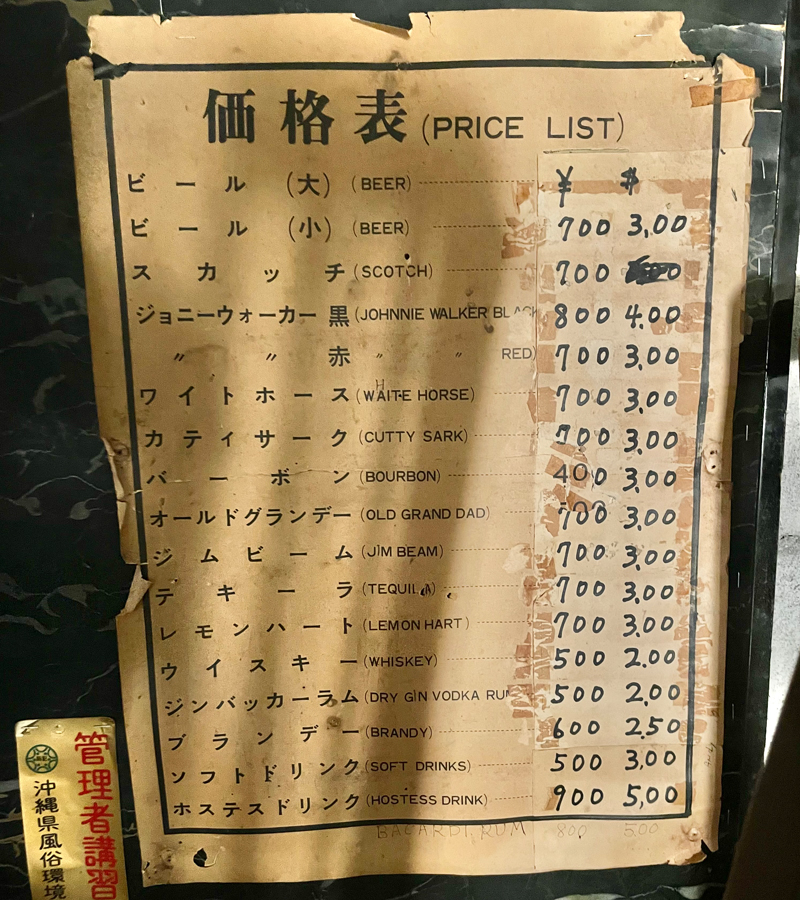 価格表 (PRICE LIST)
ビール (大) (BEER) ¥ $
ビール (小) (BEER) 700 3,00
スカッチ (SCOTCH) 700
ジョニーウォーカー 黒 (JOHNNIE WALKER BLACK 800 4.00
〃 〃 赤 〃 〃 RED) 700 3,00
ワイトホース (WAITE HORSE) H 700 3,00
カティサーク (CUTTY SARK) 700 3,00
バーボン (BOURBON) 400 3,00
オールドグランデー (OLD GRAND DAD) 700 3,00
ジムビーム (JIM BEAM) 700 3,00
テキーラ (TEQUILA) 700 3,00
レモンハート (LEMON HART) 700 3,00
ウイスキー (WHISKEY) 500 2.00
ジンバッカーラム (DRY GIN VODKA RUM 500 2,00
ブランデー (BRANDY) 600 2.50
ソフトドリンク (SOFT DRINKS) 500 3.00
ホステスドリンク (HOSTESS DRINK) 900 5,00
BACARDI RUM 800 5.00
管理者講習
沖縄県風俗環境